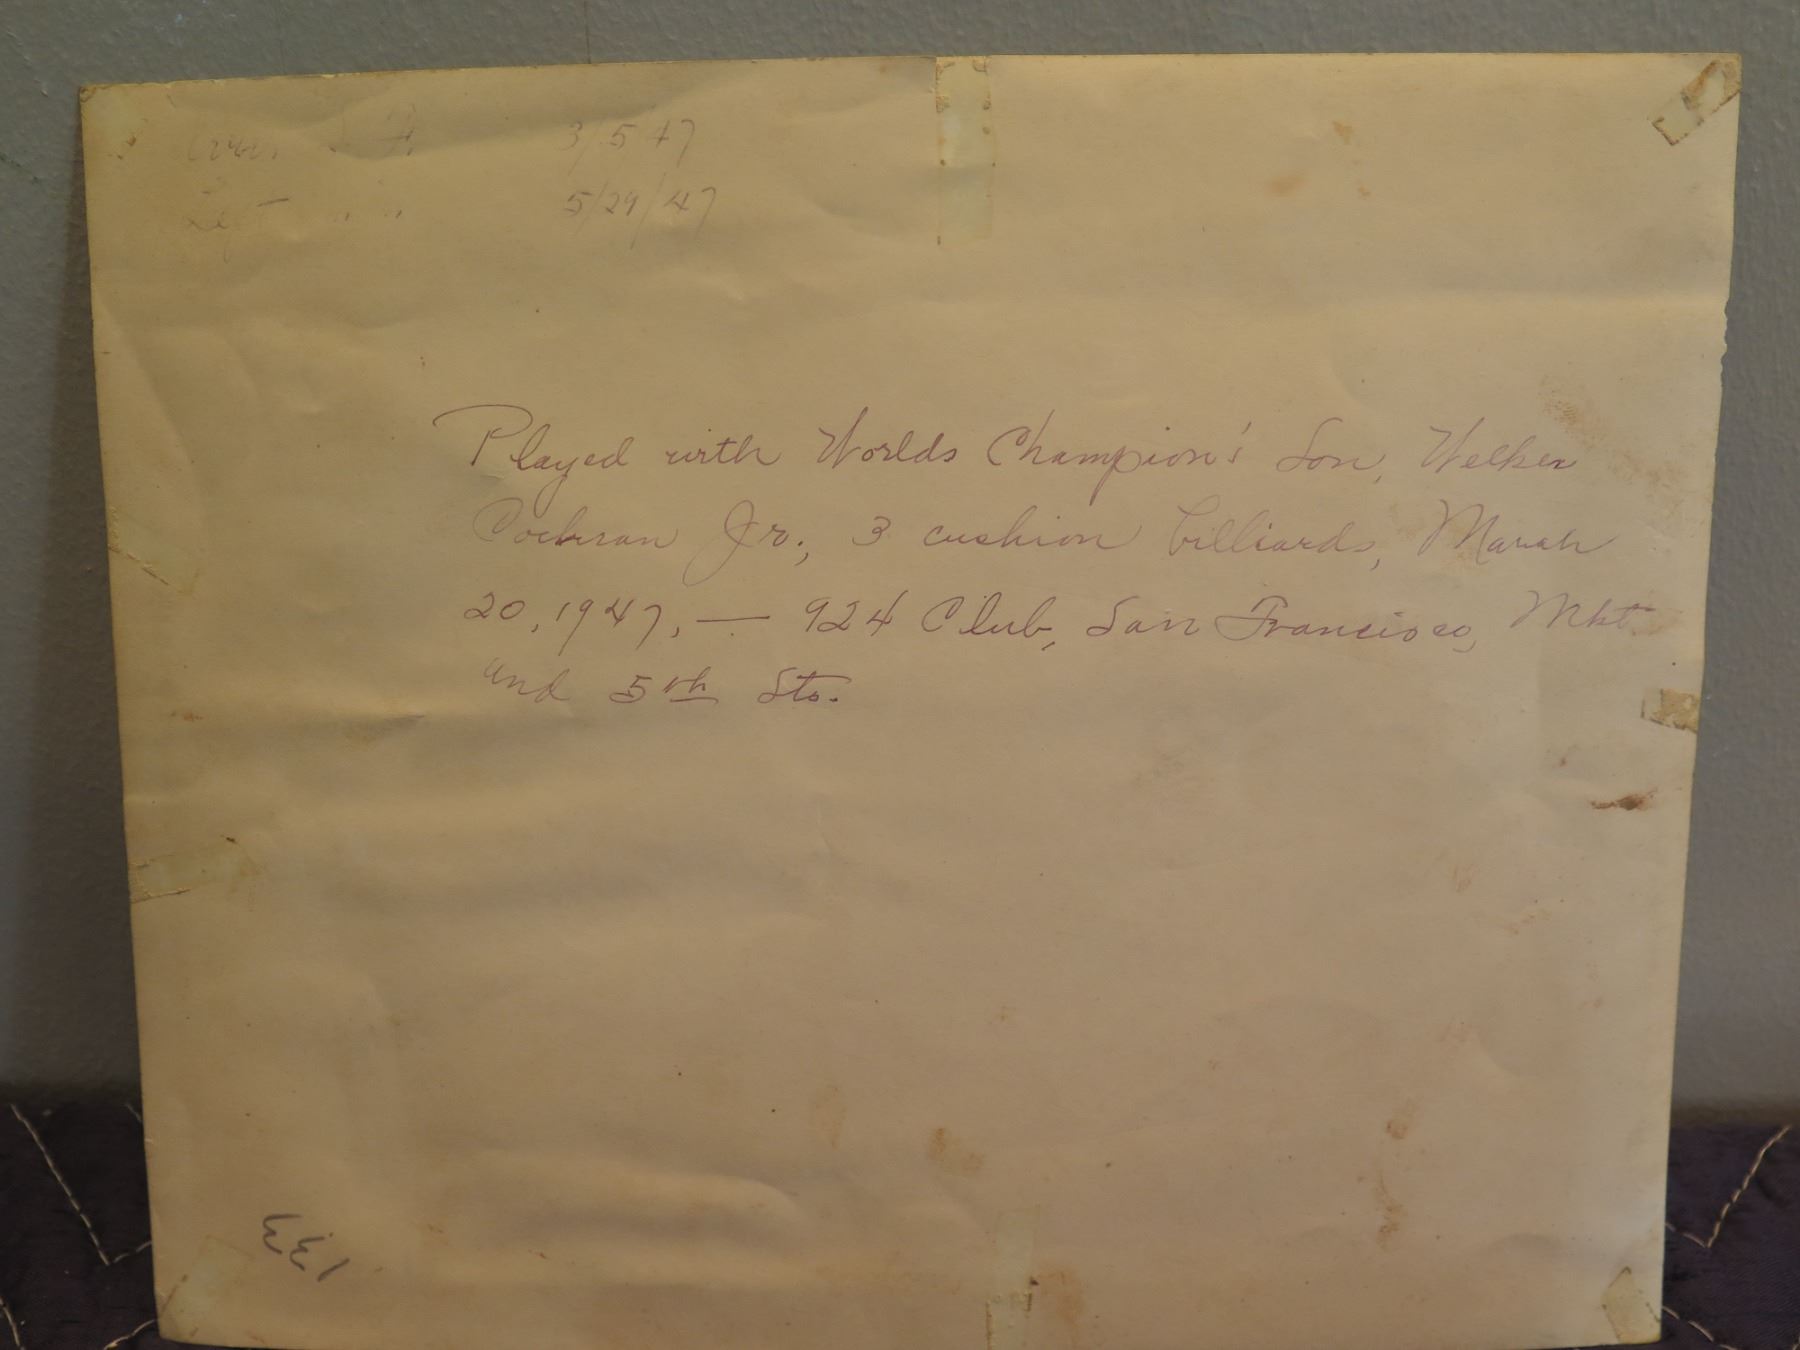 3/5/47
Left 5/29/47
Played with Worlds Champion's Son, Welker
Cochran Jr., 3 cushion billiards, March
20, 1947, — 924 Club, San Francisco, Mkt
and 5th Sts.
133